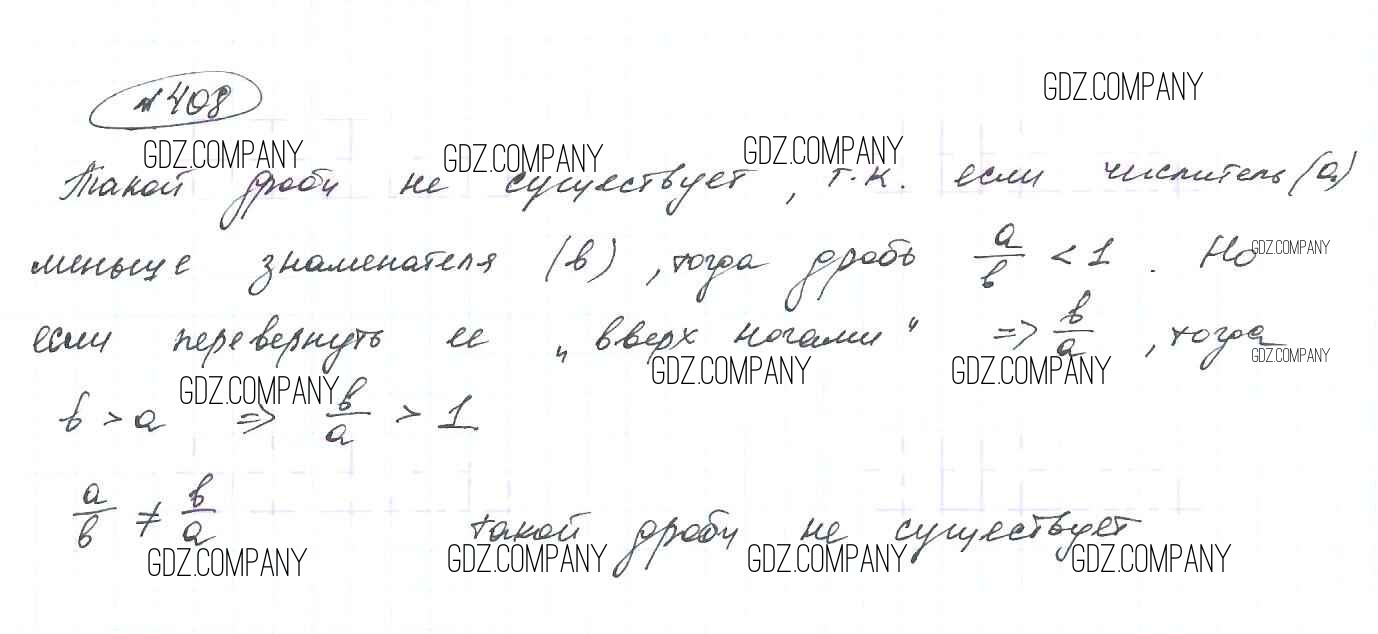 № 408
GDZ.COMPANY
GDZ.COMPANY GDZ.COMPANY GDZ.COMPANY
Такой дроби не существует, т.к. если числитель (a)
меньше знаменателя (b), тогда дробь a/b < 1. Но
GDZ.COMPANY
если перевернуть ее „вверх ногами" => b/a, тогда
GDZ.COMPANY GDZ.COMPANY GDZ.COMPANY GDZ.COMPANY
b > a => b/a > 1
a/b ≠ b/a такой дроби не существует
GDZ.COMPANY GDZ.COMPANY GDZ.COMPANY GDZ.COMPANY